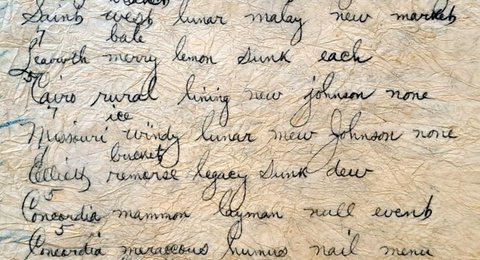 Saints west lunar malay new market
7 bale
Leavwth merry lemon sunk each
Cairo rural lining new johnson none
7 ice
Missouri windy lunar mew Johnson none
bucket
Elliott remorse legacy sunk dew
5
Concordia mammon layman null event
5
Concordia meraccous humus nail menu